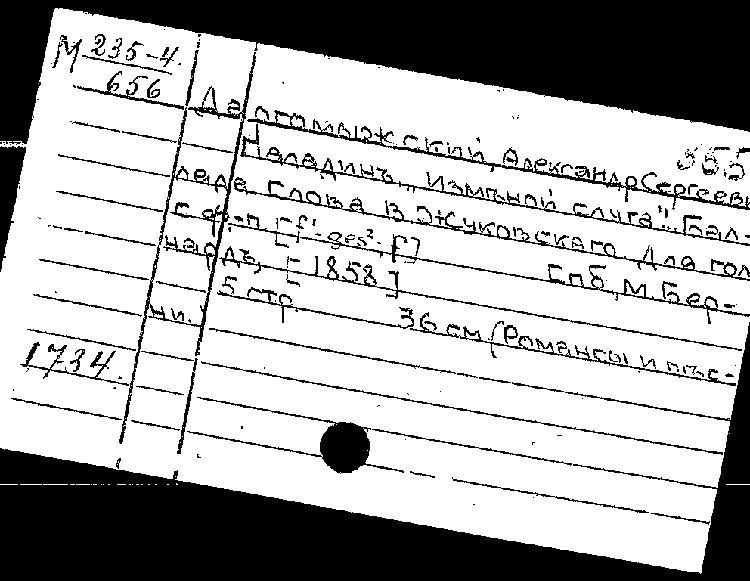 М 235-4
656
355
Даргомыжский, Александр Сергееви
Паладинъ. "Измѣной слуга". Бал-
лада. Слова В. Жуковскаго. Для гол
с ф.-п. [f'-ges²; f']
Спб, М. Бер-
нардъ, [1858]
5 стр. 36 см (Романсы и пѣс-
ни.)
1734.